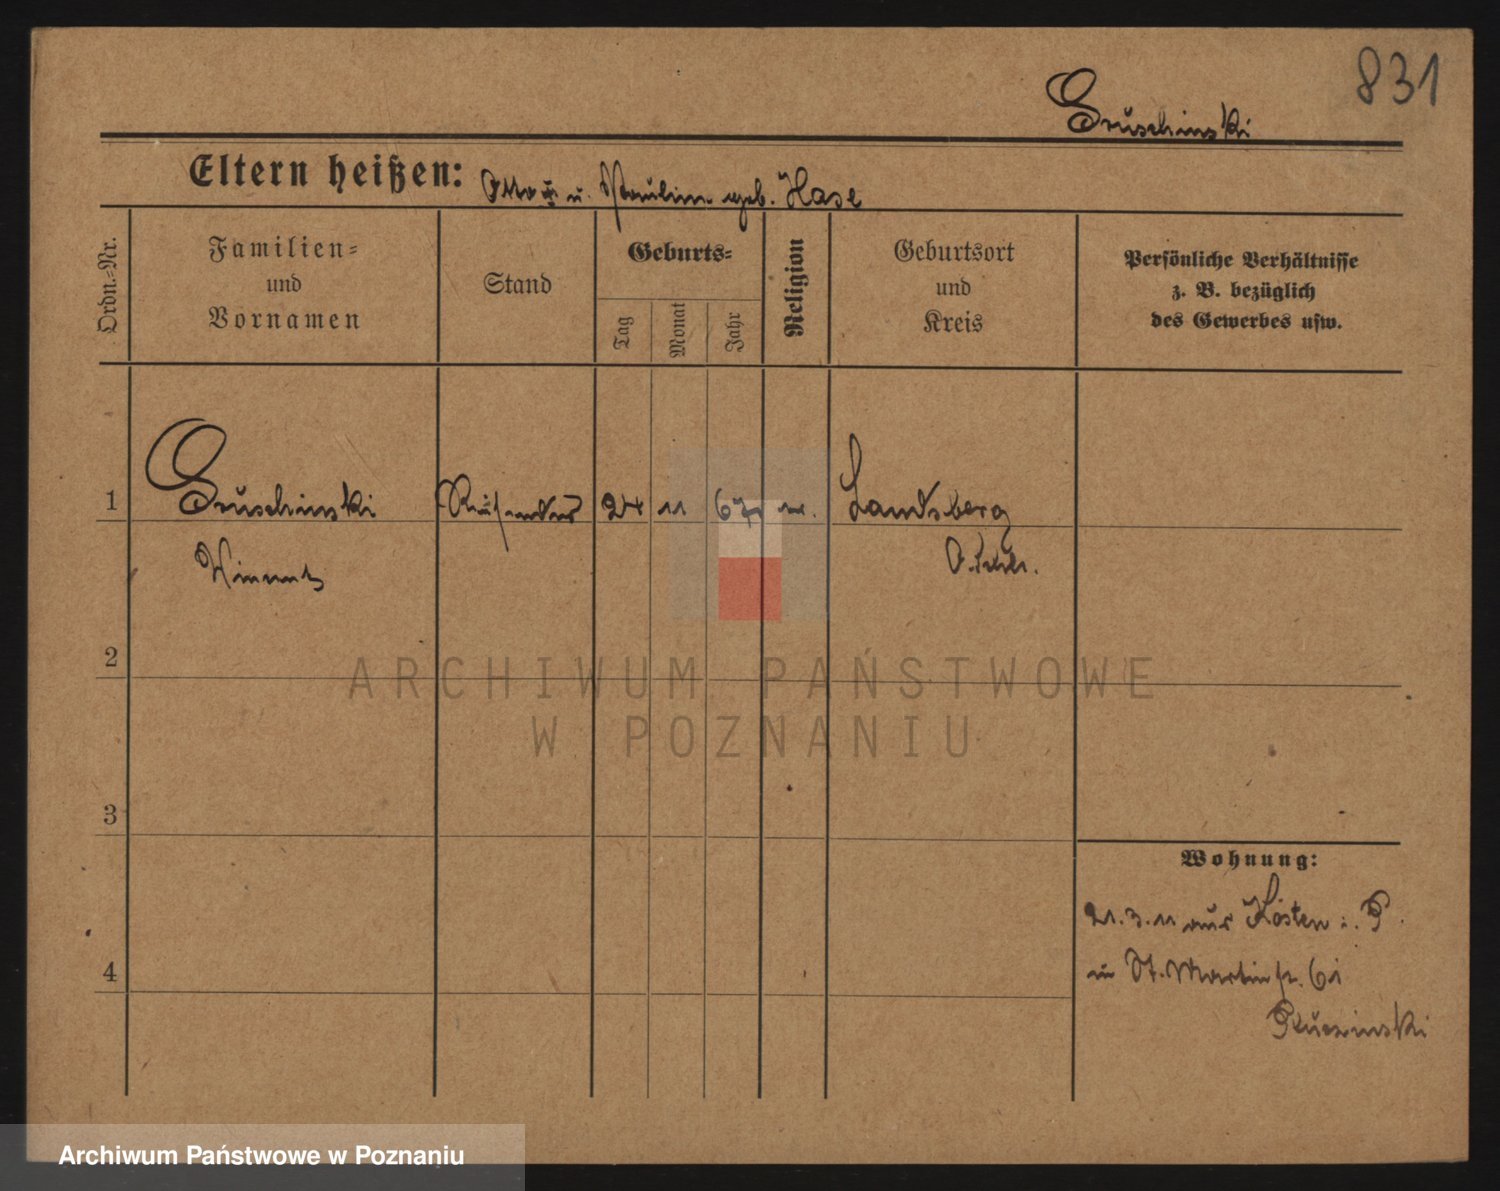 831
Gruschinski
Eltern heißen: Otto u. Paulin geb. Hase
Ordn.-Nr.
Familien-
und
Vornamen
Stand
Geburts-
Tag
Monat
Jahr
Religion
Geburtsort
und
Kreis
Persönliche Verhältnisse
z. B. bezüglich
des Gewerbes usw.
1 Gruschinski 24 11 67 Landsberg
2
3
4
Wohnung:
21.3.11 aus Kosten i. P.
in St. Martinstr. 61
ARCHIWUM PAŃSTWOWE
W POZNANIU
Archiwum Państwowe w Poznaniu